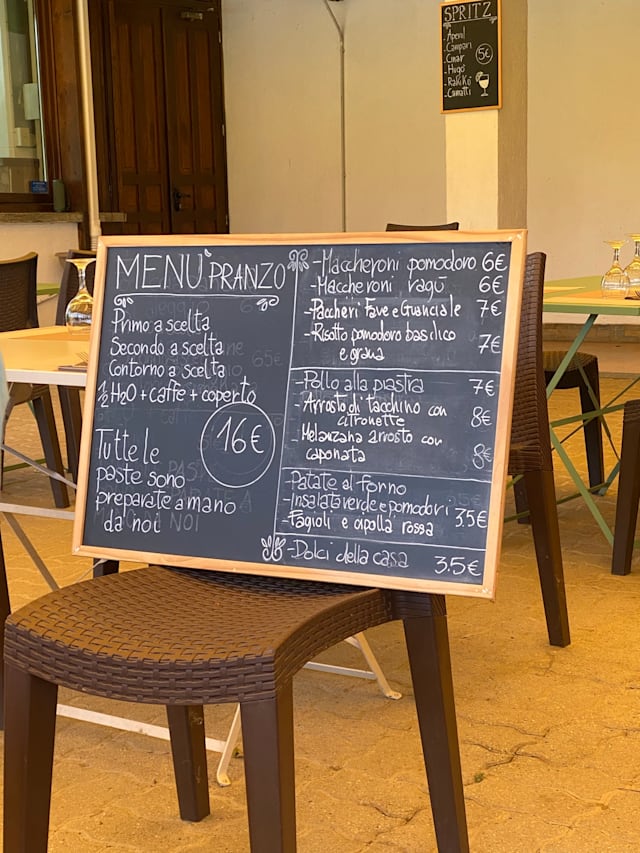 SPRITZ
-Aperol
-Campari
-Cynar
-Hugo
-Rakikó
5€
MENU PRANZO
Primo a scelta
Secondo a scelta
Contorno a scelta
½ H2O + caffe + coperto
16€
Tutte le
paste sono
preparate a mano
da noi
-Maccheroni pomodoro 6€
-Maccheroni ragù 6€
-Paccheri Fave e Guanciale 7€
-Risotto pomodoro basilico
e grana 7€
-Pollo alla piastra 7€
-Arrosto di tacchino con
citronette 8€
-Melanzana arrosto con
caponata 8€
-Patate al forno
-Insalata verde e pomodori
-Fagioli e cipolla rossa 3.5€
-Dolci della casa 3.5€